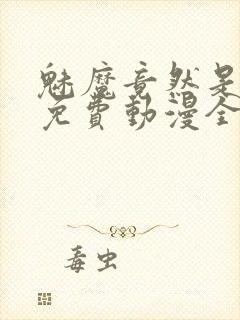 魅魔竟然是
免費動漫全
毒虫